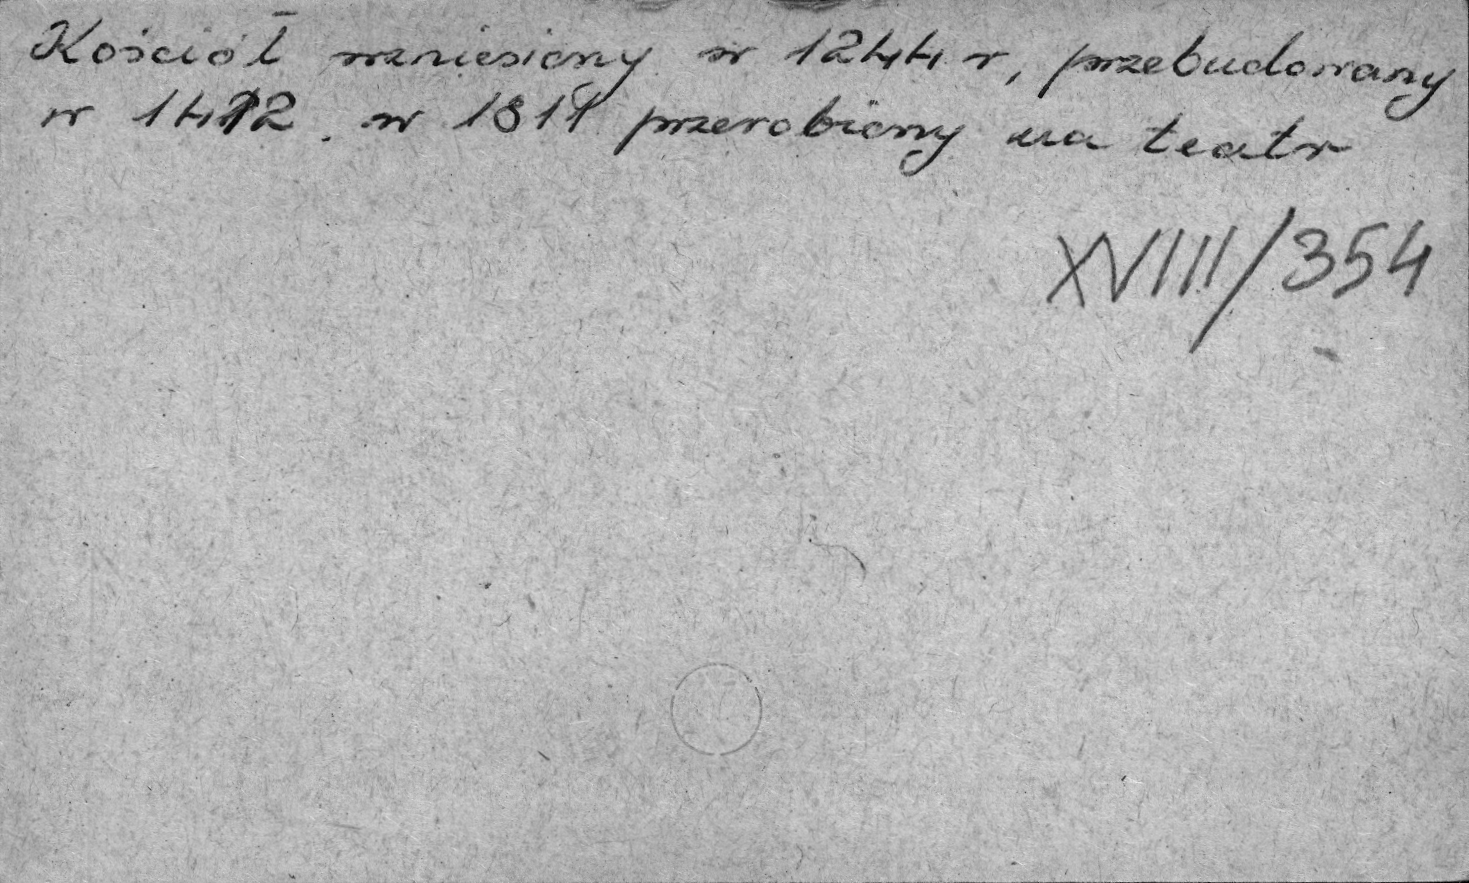 Kościół wzniesiony w 1244 r, przebudowany
w 1412. w 1811 przerobiony na teatr
XVIII/354